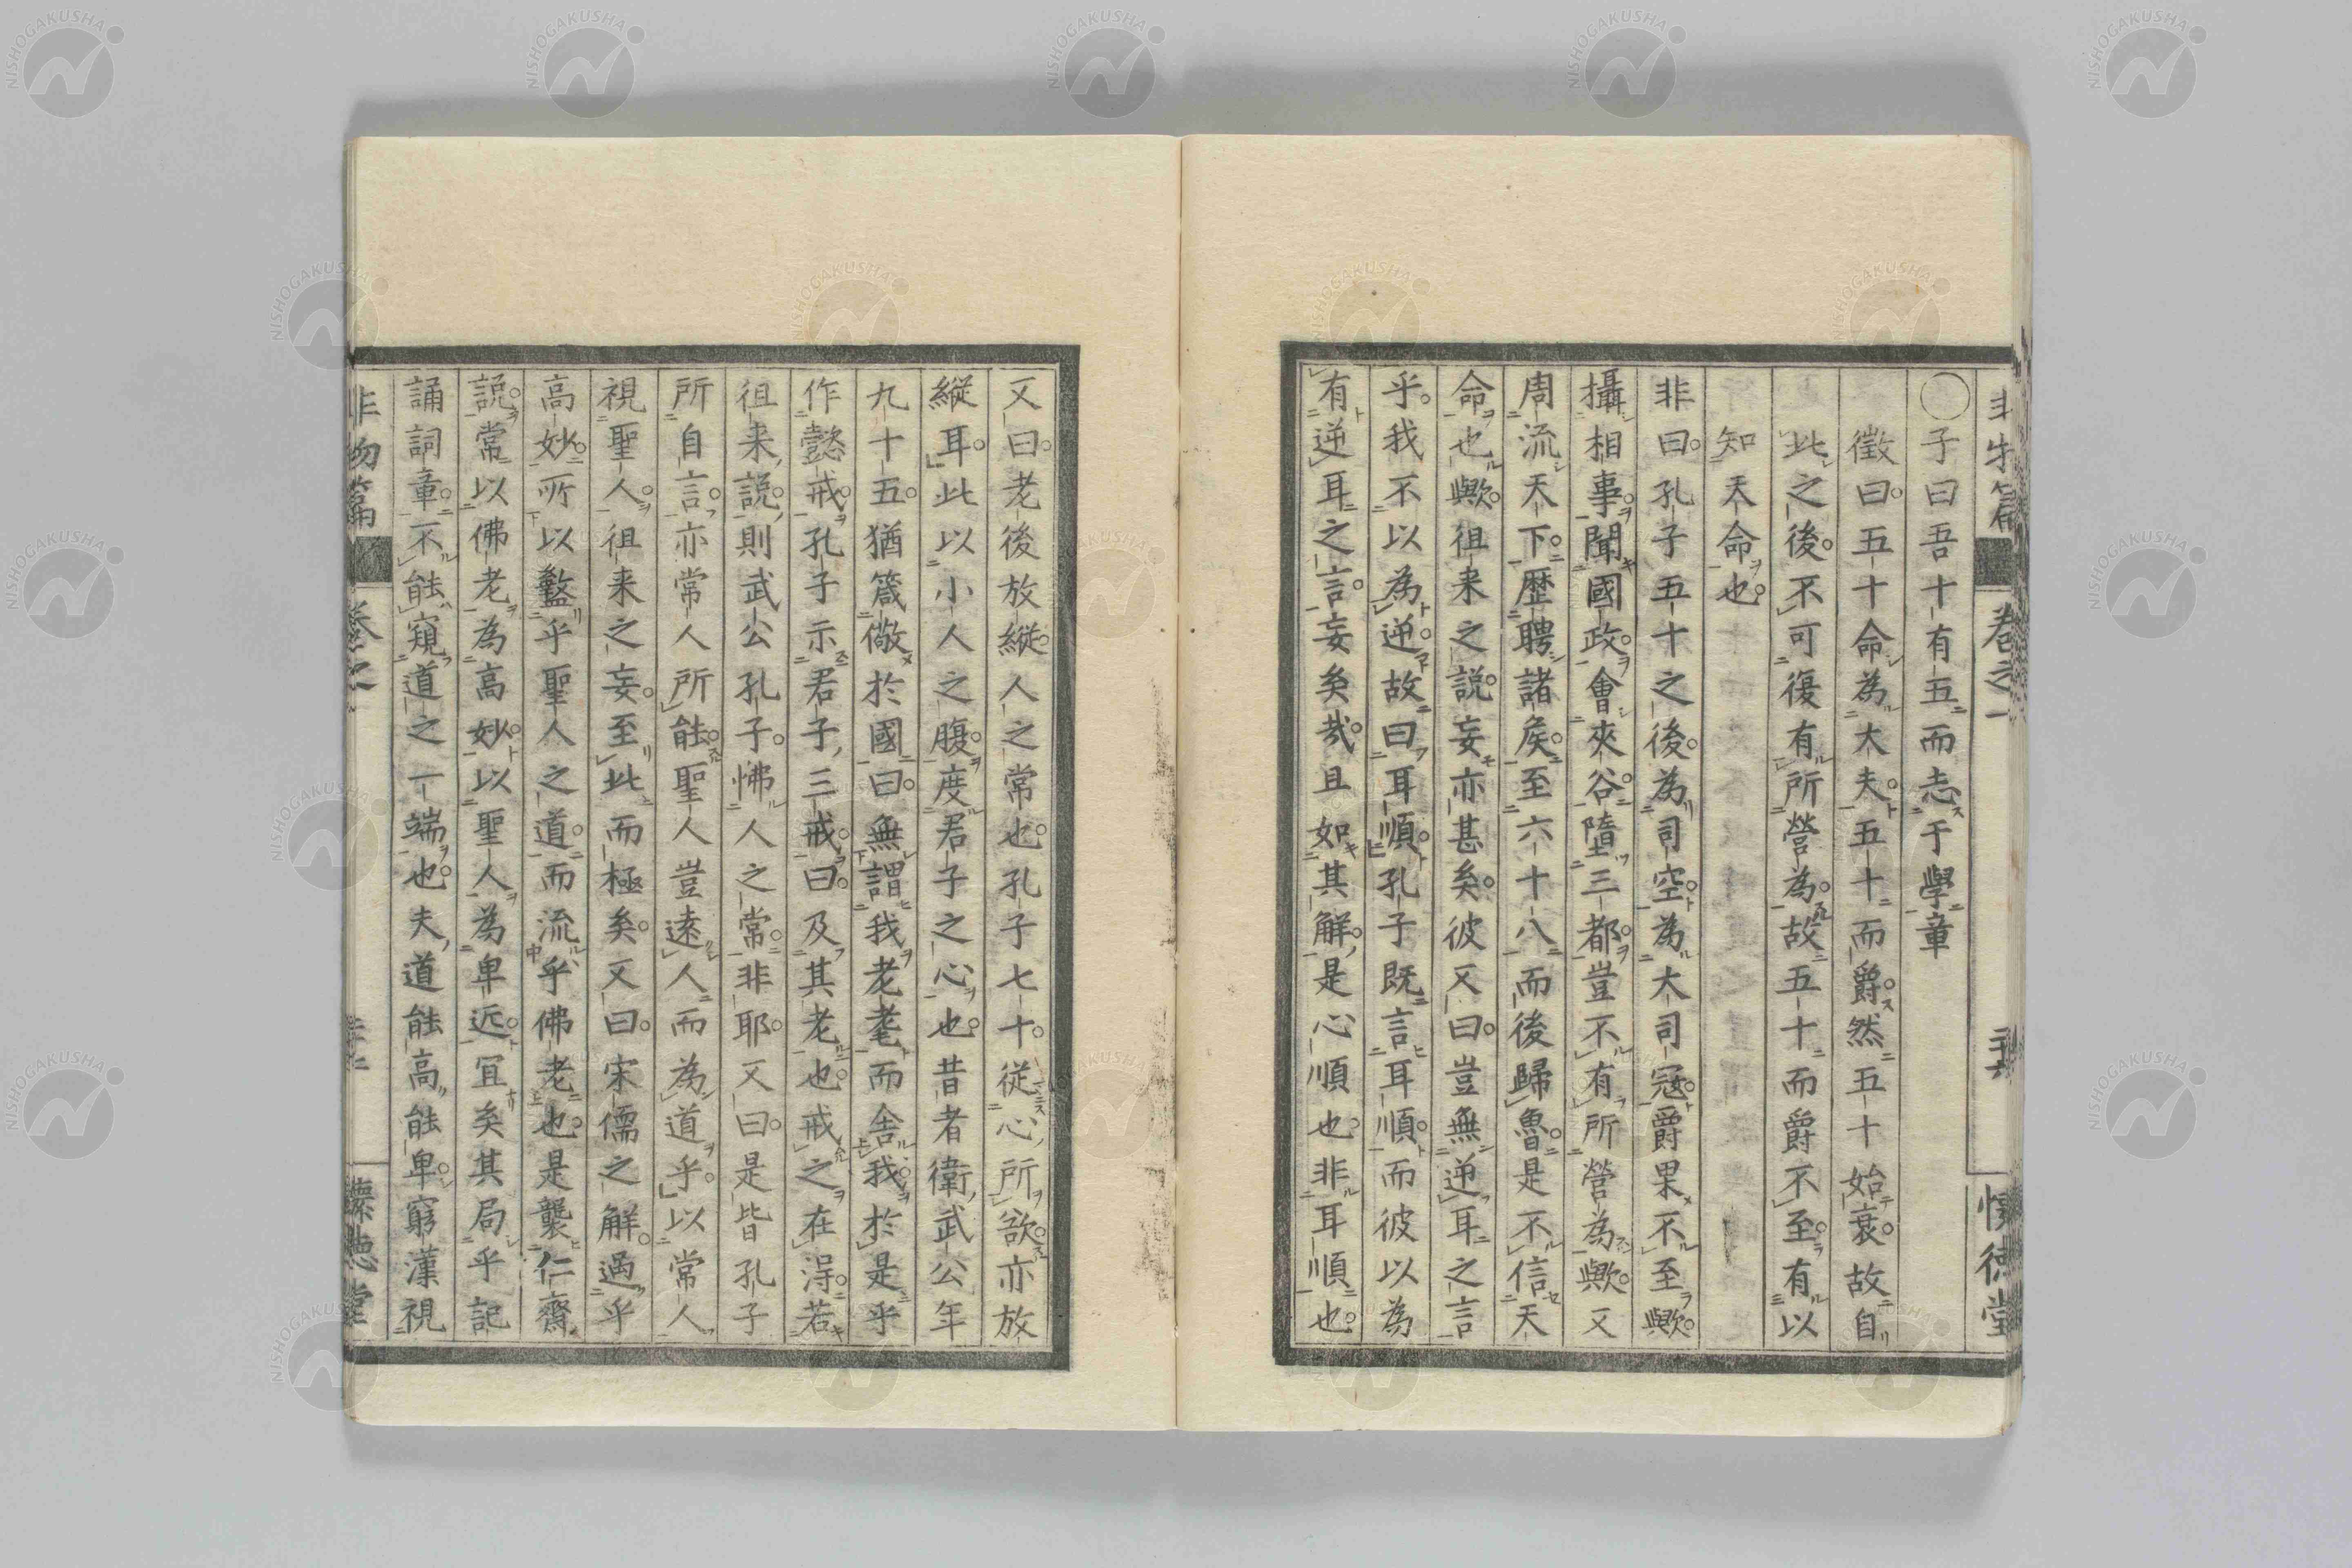 非物篇 卷之一 懷德堂
○子曰吾十有五而志于學章
徵曰五十命為大夫五十而爵然五十始衰故自
此之後不可復有所營為故五十而爵不至有以
知天命也
非曰孔子五十之後為司空為大司寇爵果不至歟
攝相事聞國政會夾谷墮三都豈不有所營為歟又
周流天下歷聘諸侯至六十八而後歸魯是不信天
命也歟徂来之説妄亦甚矣彼又曰豈無逆耳之言
乎我不以為逆故曰耳順孔子既言耳順而彼以為
有逆耳之言妄矣哉且如其解是心順也非耳順也
又曰老後放縱人之常也孔子七十從心所欲亦放
縱耳此以小人之腹度君子之心也昔者衛武公年
九十五猶箴儆於國曰無謂我老耄而舍我於是乎
作懿戒孔子示君子三戒曰及其老也戒之在得若
徂来説則武公孔子怫人之常非耶又曰是皆孔子
所自言亦常人所能聖人豈遠人而為道乎以常人
視聖人徂来之妄至此而極矣又曰宋儒之解遇乎
高妙所以盭乎聖人之道而流乎佛老也是襲仁齋
説常以佛老為高妙以聖人為卑近宜矣其局乎記
誦詞章不能窺道之一端也夫道能高能卑窮漢視
非物篇 卷之 懷德堂
NISHOGAKUSHA